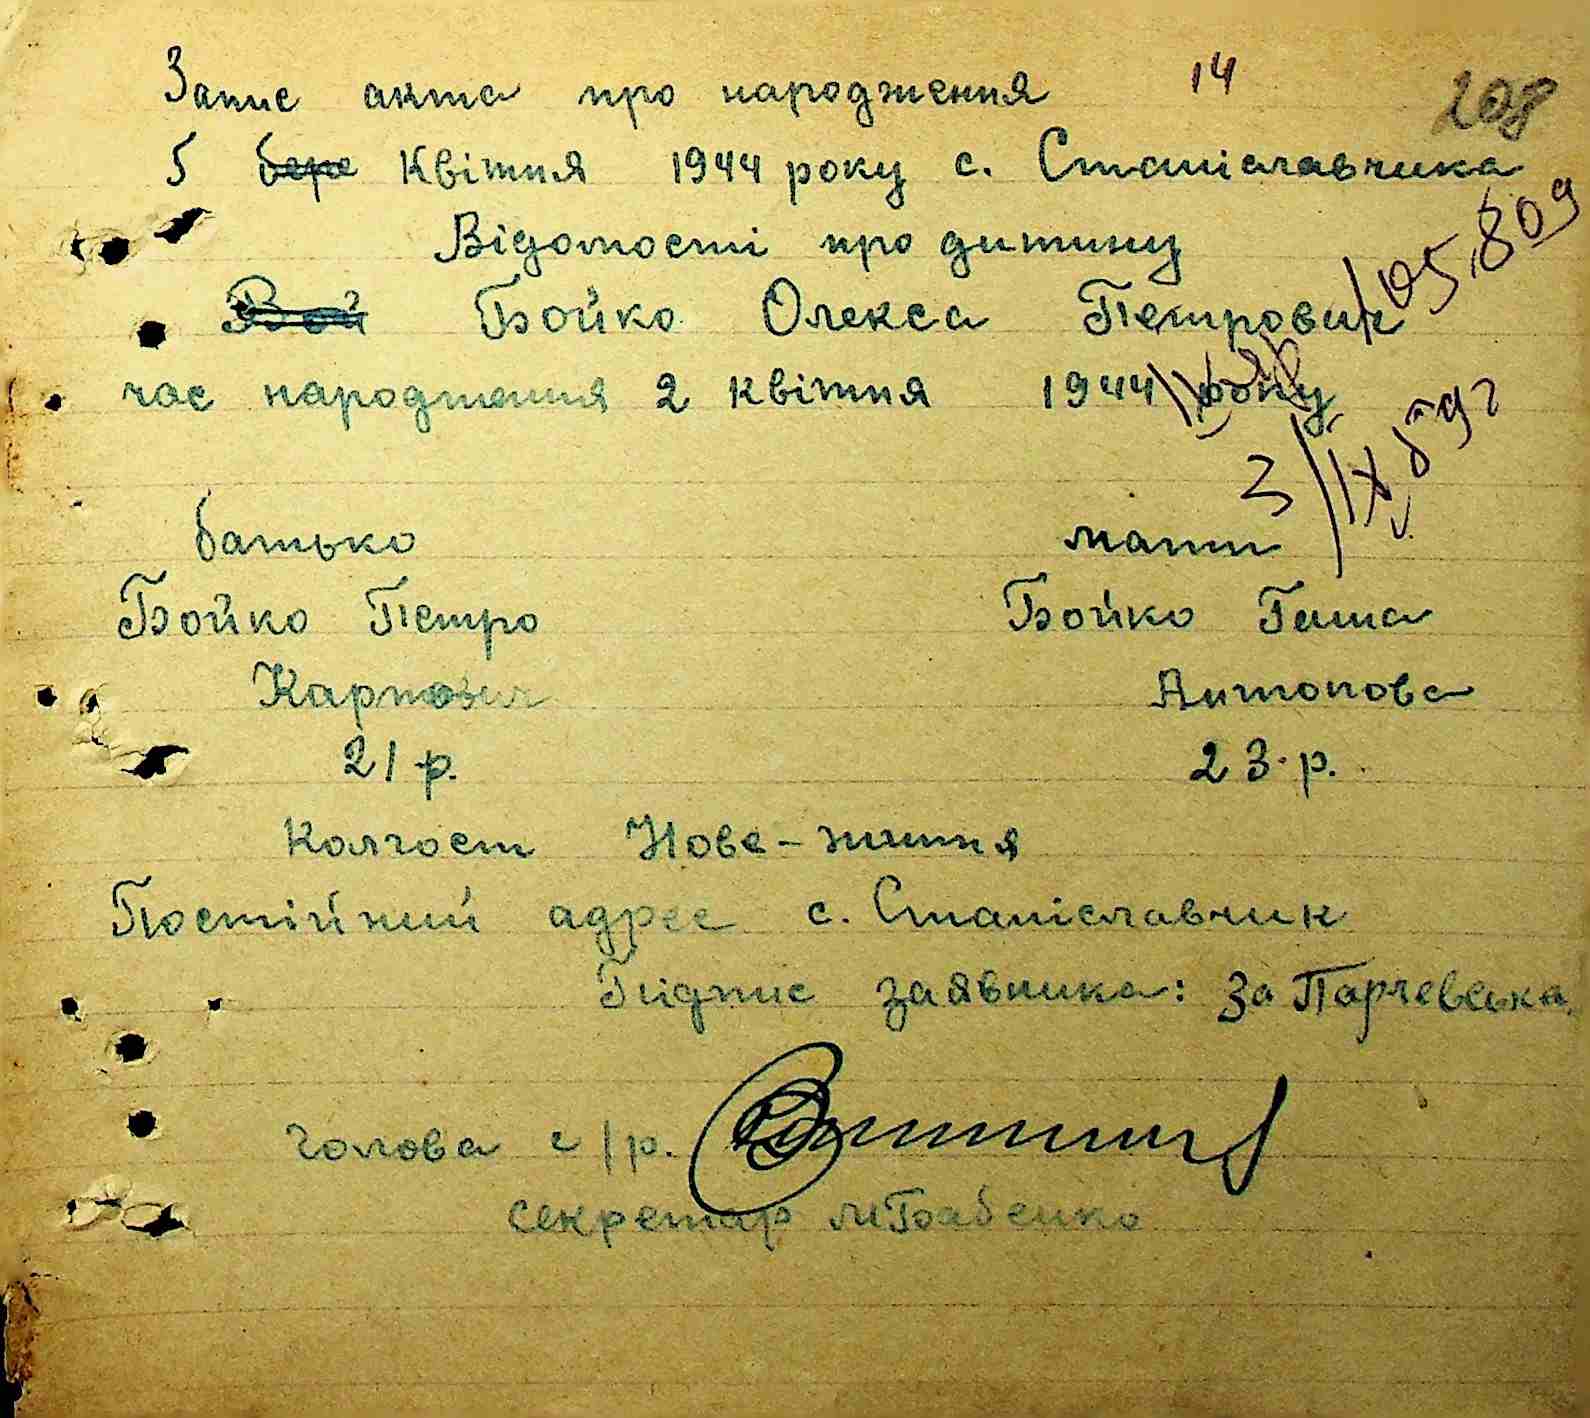 Запис акта про народження 14
208
5 бере Квітня 1944 року с. Станіславчика
Відомості про дитину
Бой Бойко Олекса Петрович
105,809
час народження 2 квітня 1944 року
3/IX
батько мати
Бойко Петро Бойко Ганна
Карпович Антонова
21 р. 23. р.
Колгосп Нове-життя
Постійний адрес с. Станіславчик
Підпис заявника: За Парчевська
голова с/р.
секретар М Бабенко